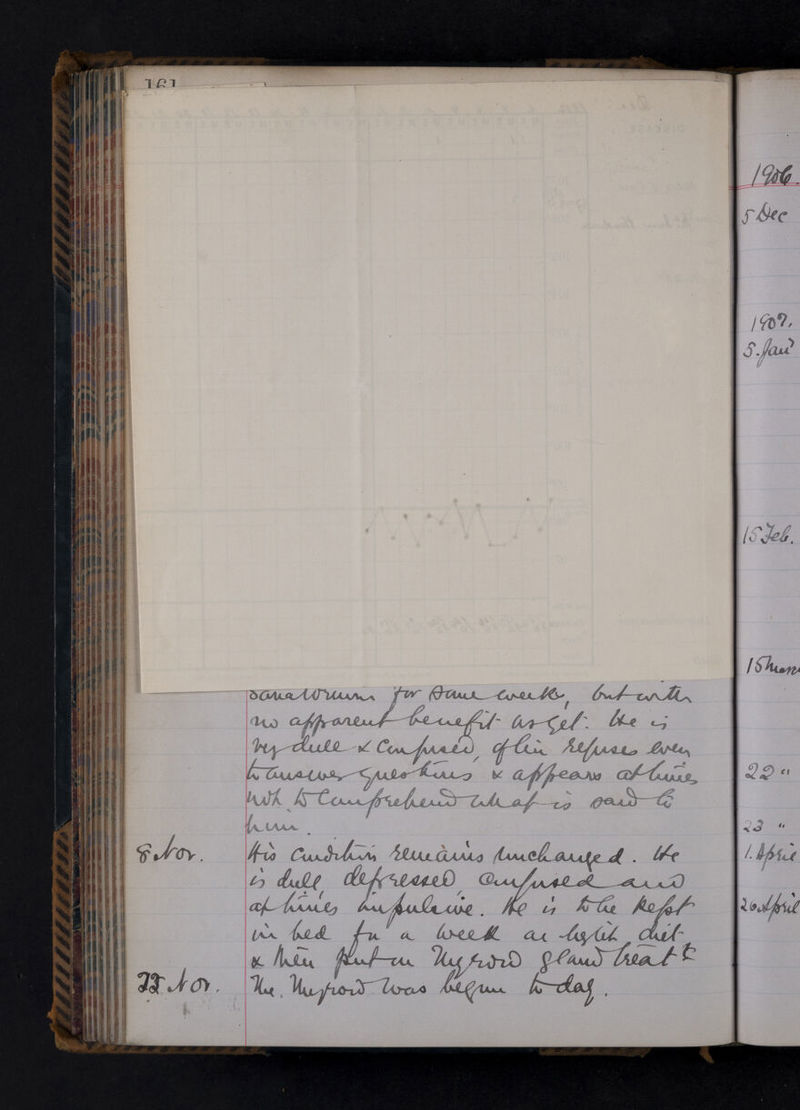 161
Sanatorium for some weeks, but with
no apparent benefit as yet. He is
very dull & confused, often refuses even
to answer questions & appears at times
not to comprehend what is said to
him.
8 Nov. His condition remains unchanged. He
is dull, depressed, confused and
at times impulsive. He is to be kept
in bed for a week on light diet
& then put on Thyroid gland treatt
22 Nov. The Thyroid was begun to-day.
1906.
5 Dec
1907.
5. Jan
15 Feb.
15 Mar
22 "
23 "
1. April
20 April